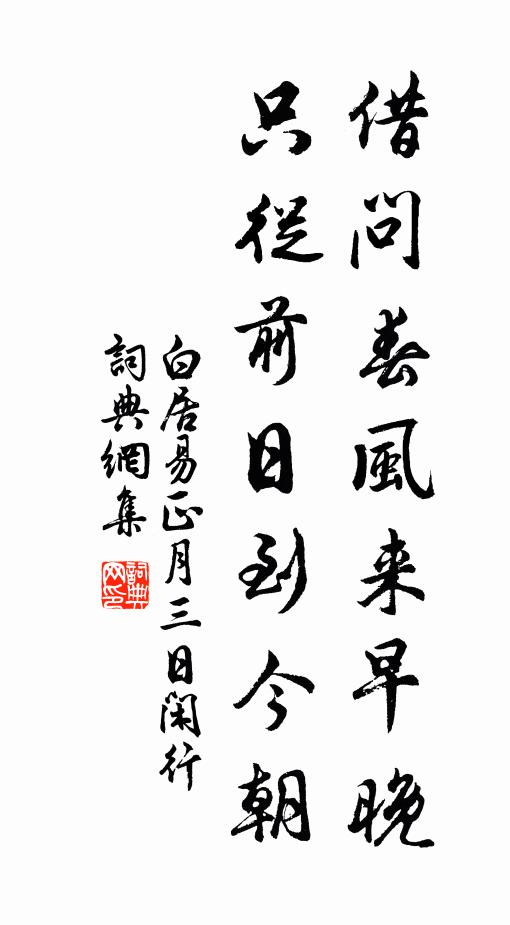 借问春風来早晚
只從前日到今朝
白居易正月三日閑行
詞典網集
詞典网印